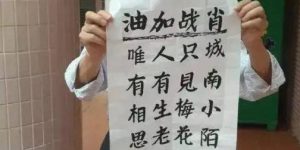 肖战加油
城南小陌
只見梅花
人有生老
唯有相思